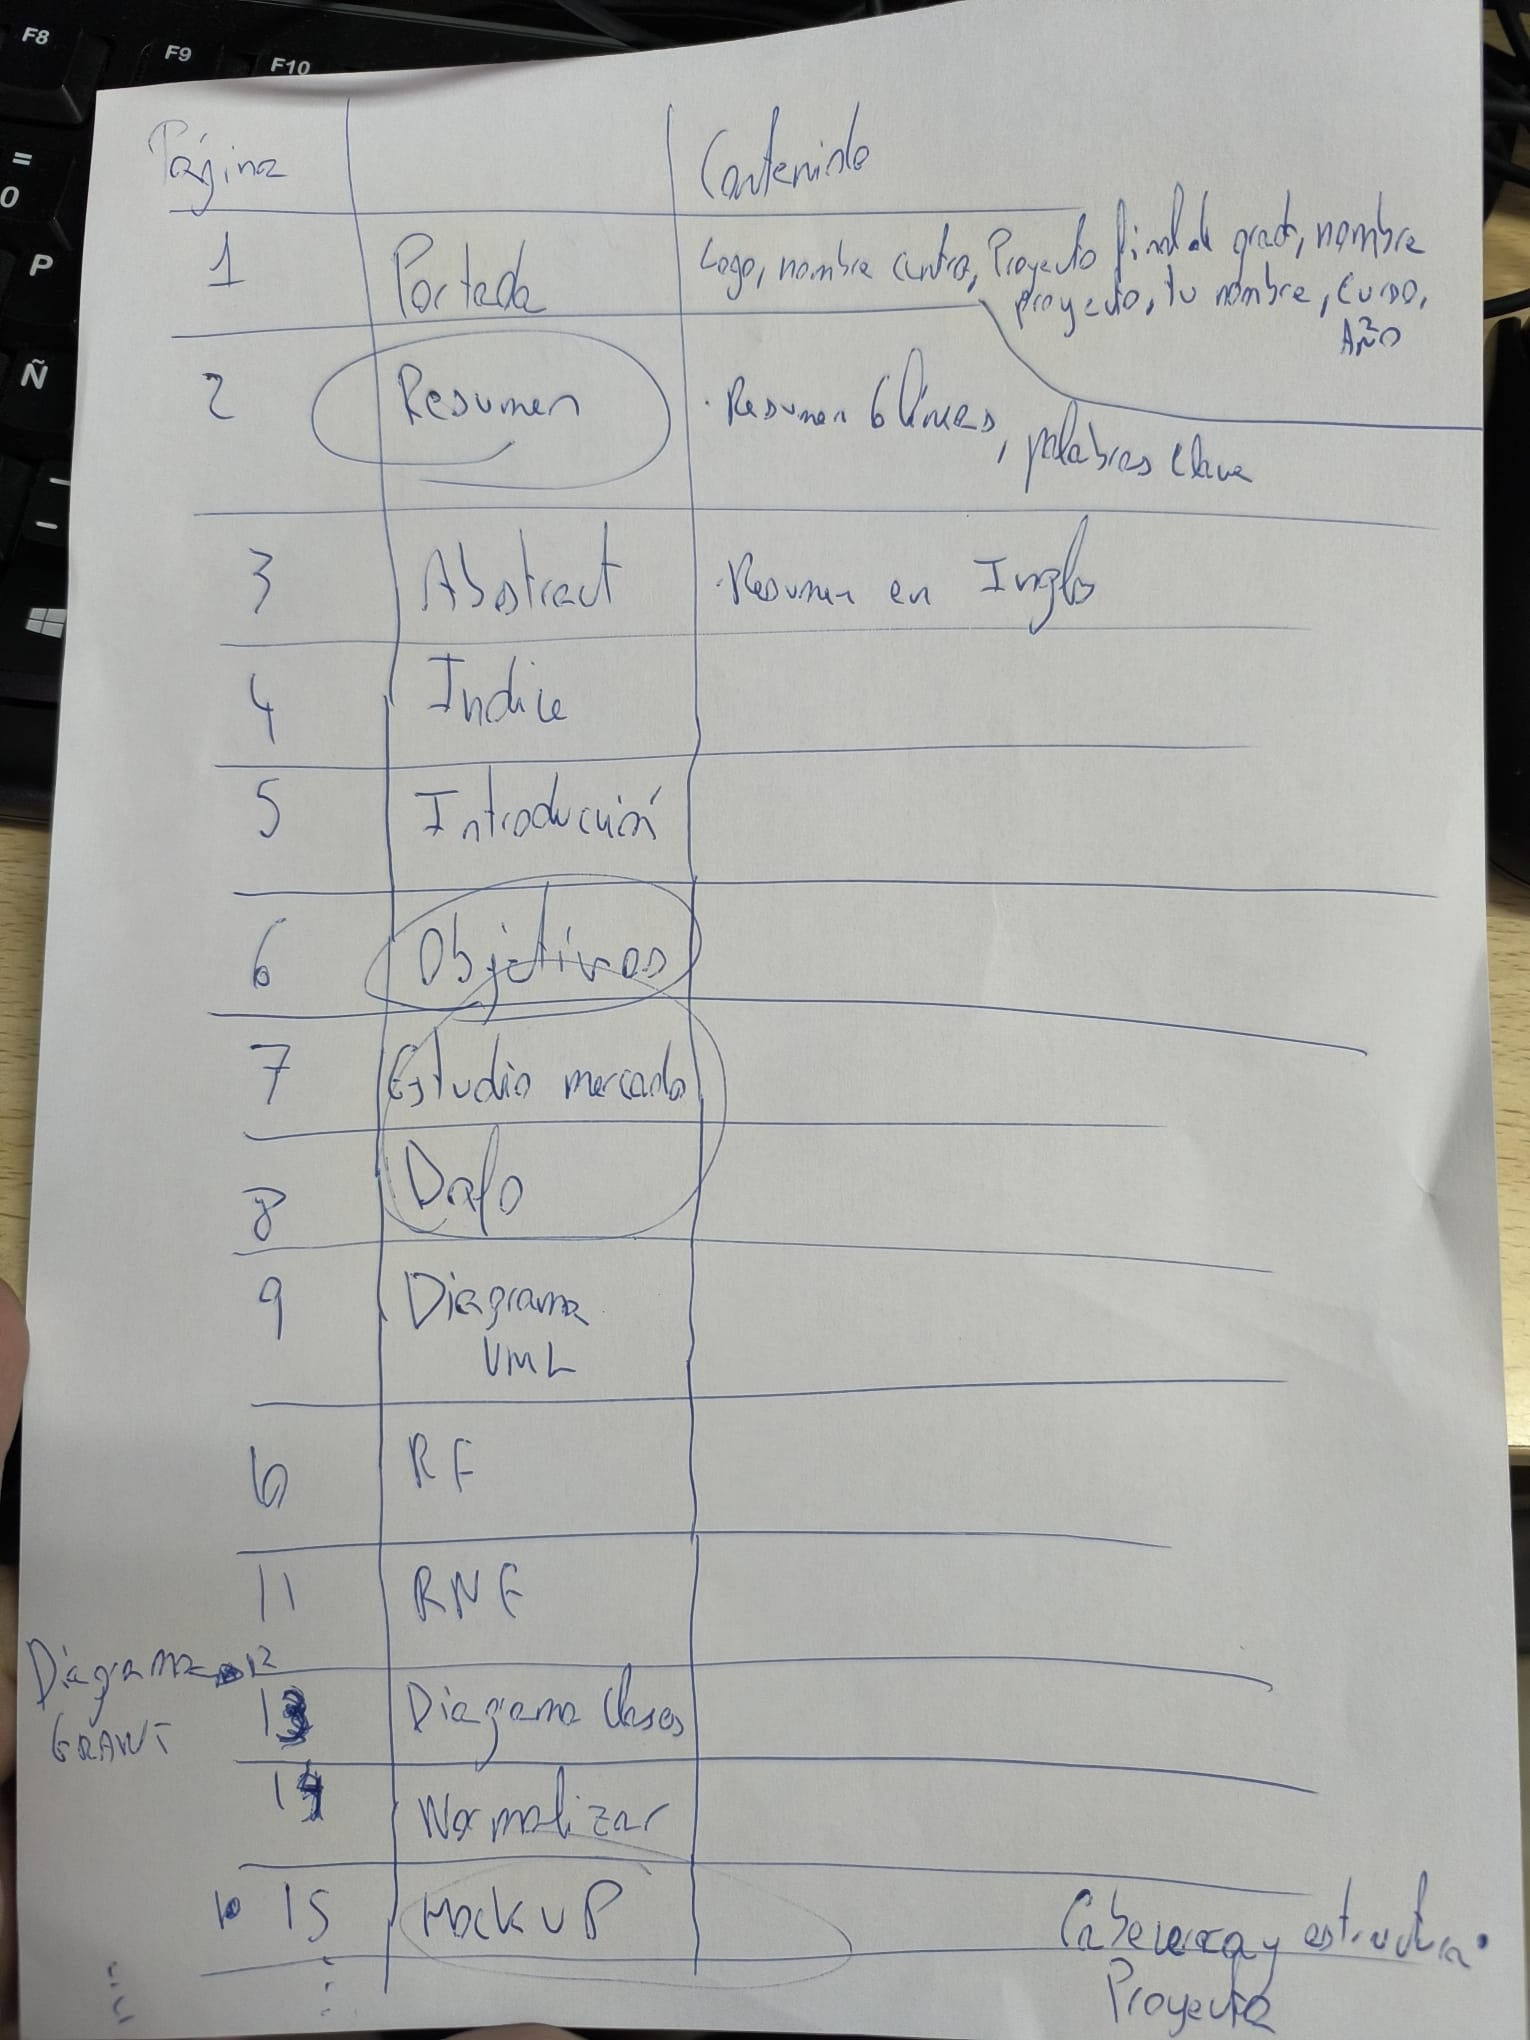 F8
F9
F10
=
0
P
Ñ
Página Contenido
1 Portada Logo, nombre centro, Proyecto final de grado, nombre
proyecto, tu nombre, curso,
AÑO
2 Resumen · Resumen 6 líneas, palabras clave
3 Abstract · Resumen en Inglés
4 Indice
5 Introducción
6 Objetivos
7 Estudio mercado
8 Dafo
9 Diagrama
UML
10 RF
11 RNF
Diagrama 12
GRANT
13 Diagrama Clases
14 Normalizar
15 MockUP
Cabecera y estructura
Proyecto